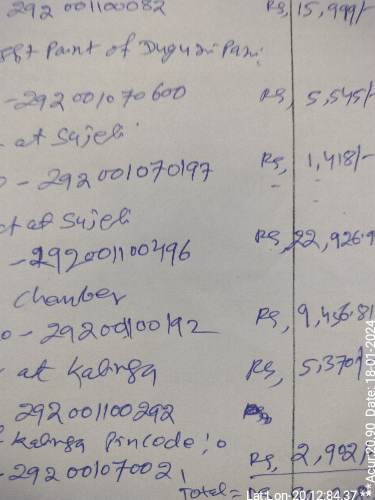 292 001100082 Rs, 15,999/-
Point of Duguri Pani
-292001070600 Rs, 5,545/-
- at Sujeli
- 292001070197 Rs, 1,418/-
at Sujeli
-292001100496 Rs, 22,926.9
Chamber
o - 292001100192 Rs, 9,456.81
at Kalinga Rs, 5,370/-
292001100292
Kalinga Pincode
-292001070021 Rs, 2,902/
Total =
Lat Lon-20.12:84.37 ** Acur:20.90 Date: 18-01-2024